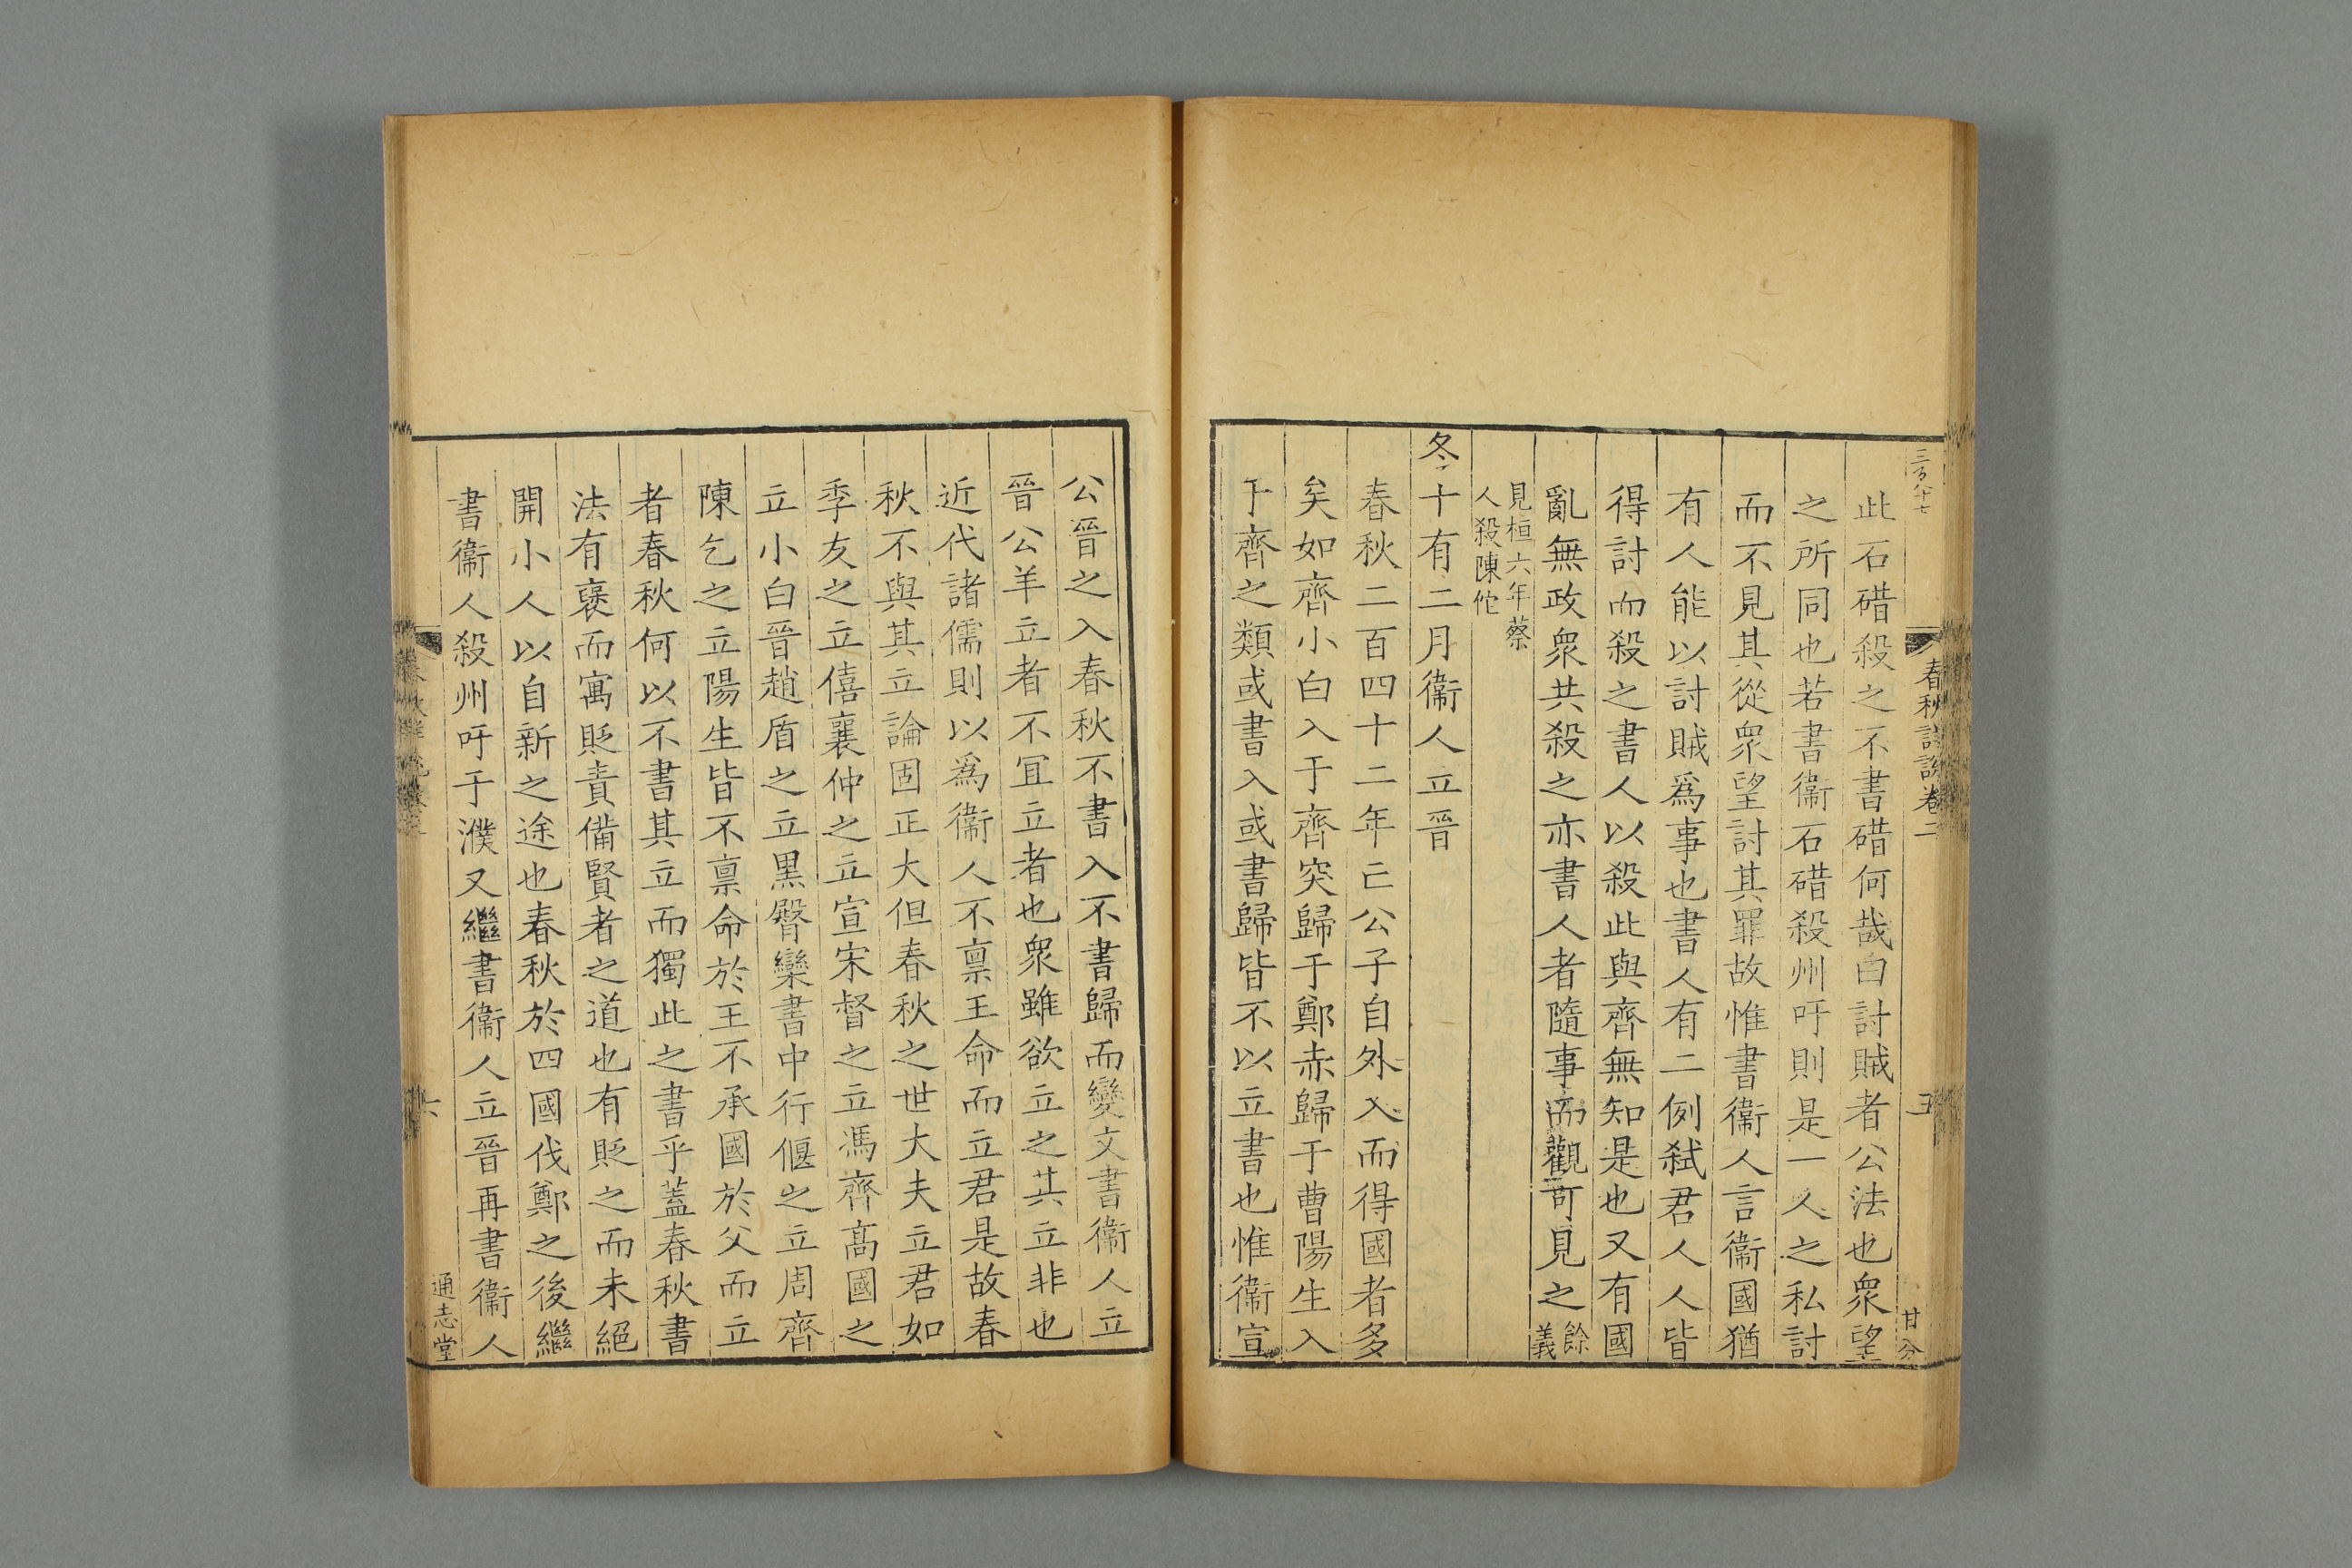 三百八十七
春秋詳說卷二
五
甘分
此石碏殺之不書碏何哉曰討賊者公法也衆望
之所同也若書衞石碏殺州吁則是一人之私討
而不見其從衆望討其罪故惟書衞人言衞國猶
有人能以討賊爲事也書人有二例弑君人人皆
得討而殺之書人以殺此與齊無知是也又有國
亂無政衆共殺之亦書人者隨事而觀可見之餘義
見桓六年蔡
人殺陳佗
冬十有二月衞人立晉
春秋二百四十二年亡公子自外入而得國者多
矣如齊小白入于齊突歸于鄭赤歸于曹陽生入
于齊之類或書入或書歸皆不以立書也惟衞宣
公晉之入春秋不書入不書歸而變文書衞人立
晉公羊立者不宜立者也衆雖欲立之其立非也
近代諸儒則以爲衞人不禀王命而立君是故春
秋不與其立論固正大但春秋之世大夫立君如
季友之立僖襄仲之立宣宋督之立馮齊高國之
立小白晉趙盾之立黑臀欒書中行偃之立周齊
陳乞之立陽生皆不禀命於王不承國於父而立
者春秋何以不書其立而獨此之書乎蓋春秋書
法有襃而寓貶責備賢者之道也有貶之而未絕
開小人以自新之途也春秋於四國伐鄭之後繼
書衞人殺州吁于濮又繼書衞人立晉再書衞人
六
通志堂